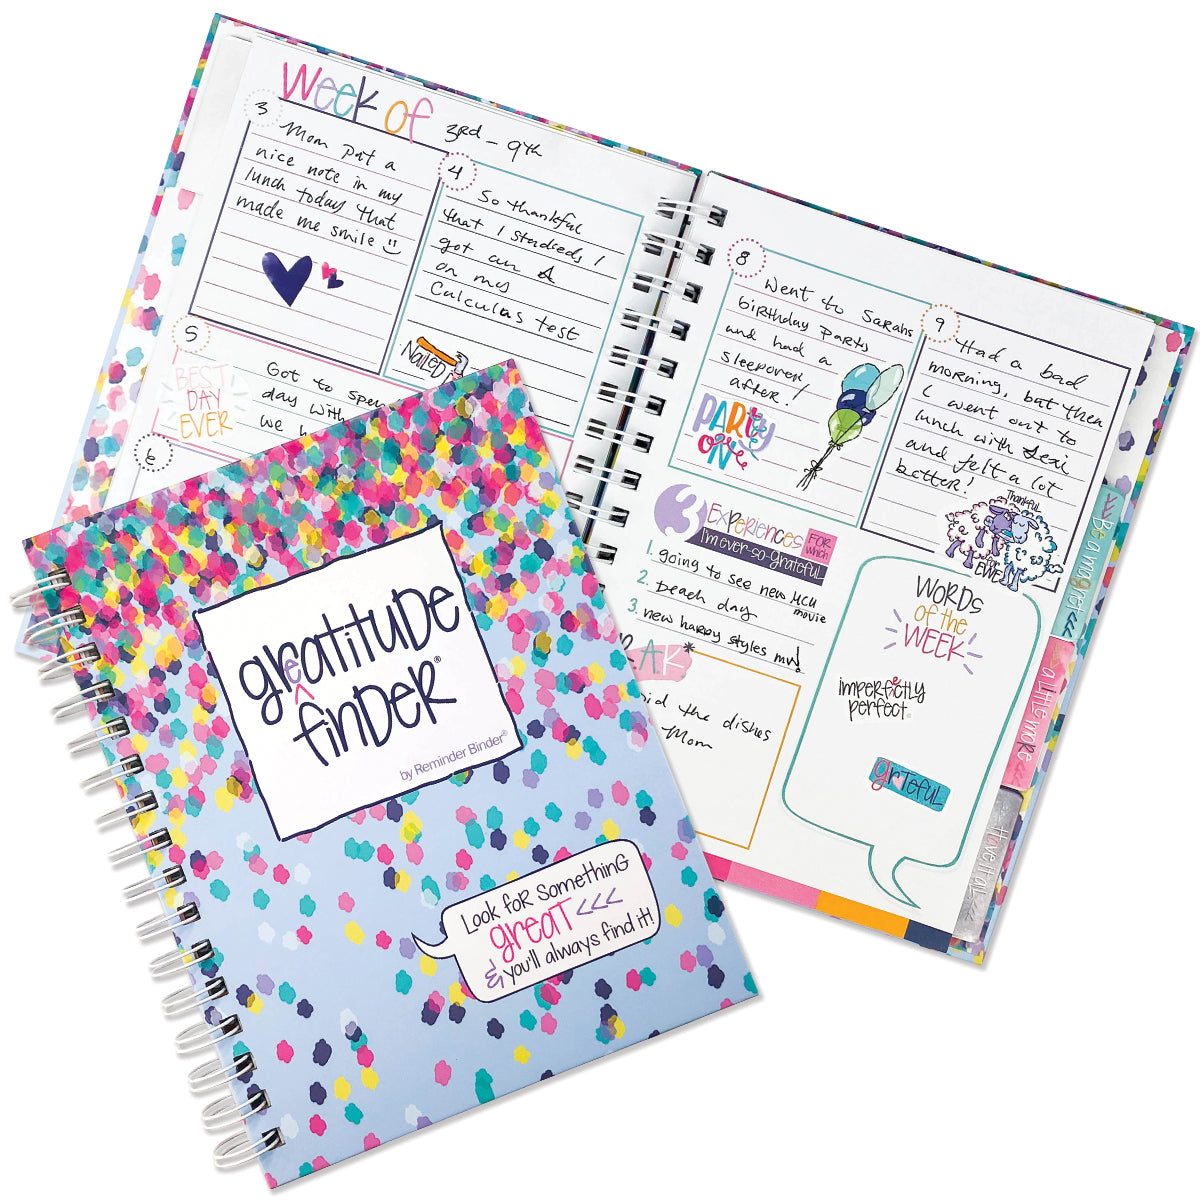 Week of 3rd - 9th
3
Mom put a
nice note in my
lunch today that
made me smile
4
So thankful
that I studieds I
got an A
on my
Calculus test
NaileD
5
BEST
DAY
EVER
Got to
day with
we
6
8
Went to Sarahs
birthday party
and had a
sleepover
after!
PARty
ON
9
Had a bad
morning, but then
I went out to
lunch with Lexi
and felt a lot
better!
Thankful
For
EWE
3 EXPERIENCES FOR which
I'm ever-so-grateful
1. going to see new MCU
movie
2. Beach day
3. new harry styles mv!
AK*
the dishes
Mom
WORDS
of the
WEEK
imperfectly
perfect
grateful
Be a magnet <<<
a little more
Have it all
greatituDe
finDeR®
by Reminder Binder®
Look foR SomethinG
greaT <<<
& you'll always find it!